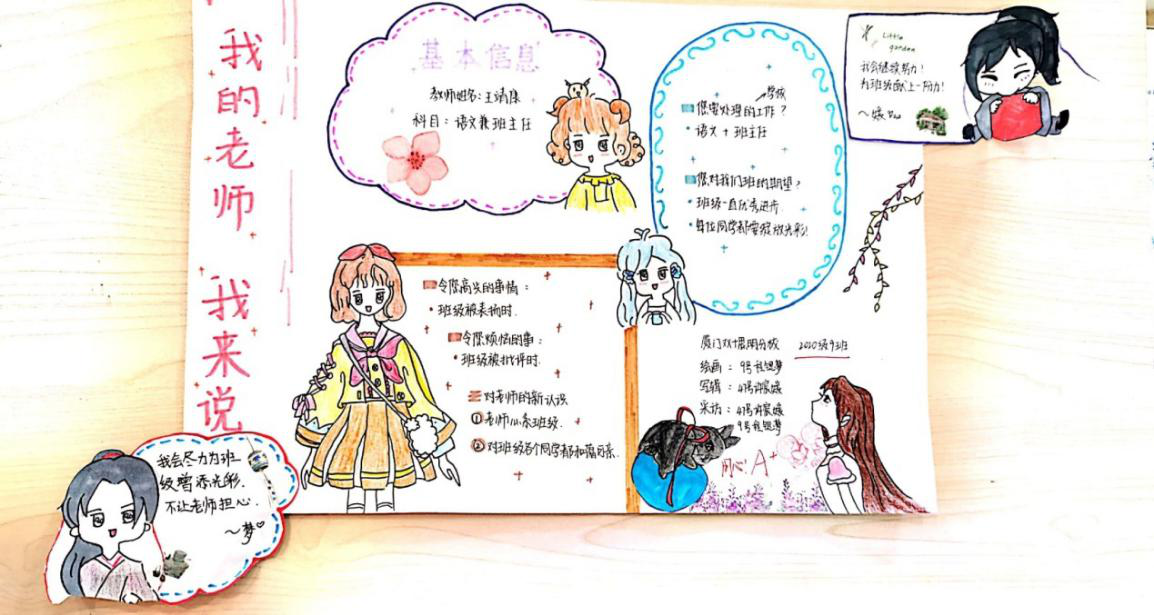 我的老师 我来说
基本信息
教师姓名：王靖康
科目：语文兼班主任
学校
您要处理的工作？
·语文＋班主任
您对我们班的期望？
·班级一直优秀进步.
·每位同学都要绽放光彩！
Little
garden
我会继续努力！
为班级贡献上一份力！
～媛
令您高兴的事情：
·班级被表扬时.
令您烦恼的事：
·班级被批评时.
对老师的新认识
①老师心系班级.
②对班级各个同学都和蔼可亲.
厦门双十思明分校 2020级9班
绘画：9号
写辑：47号许家媛
采访：47号许家媛
9号
用心！A+
我会尽力为班
级增添光彩.
不让老师担心.
～梦